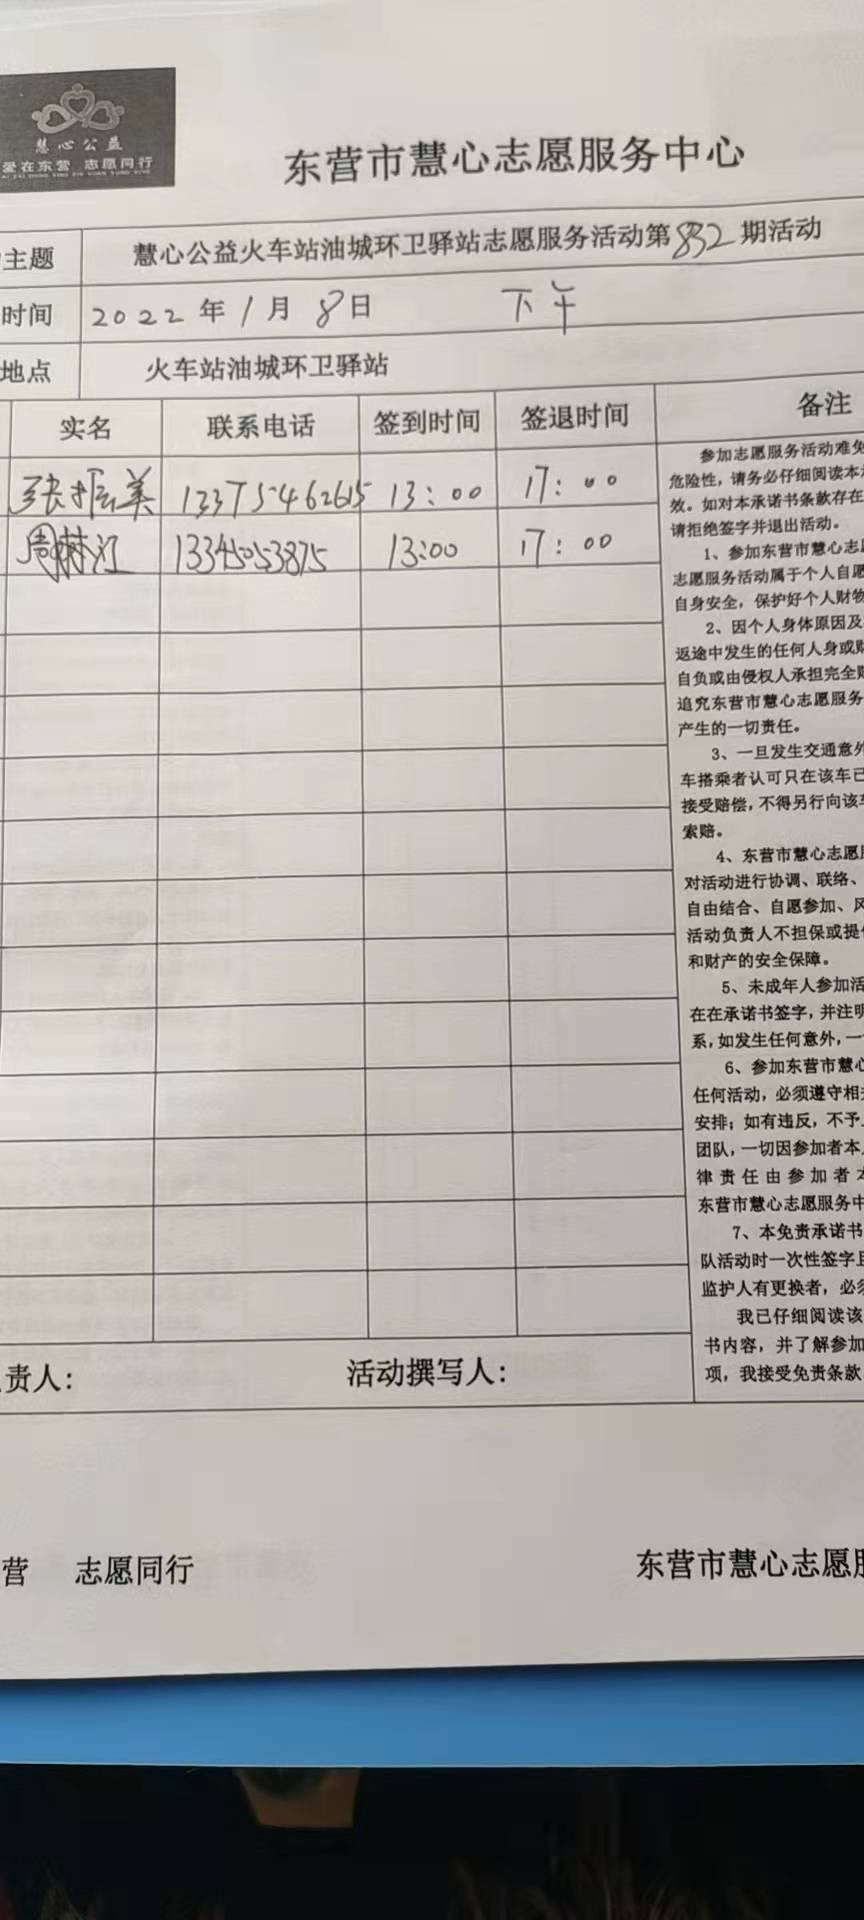 慧心公益
爱在东营 志愿同行
东营市慧心志愿服务中心
主题 慧心公益火车站油城环卫驿站志愿服务活动第832期活动
时间 2022年1月8日 下午
地点 火车站油城环卫驿站
实名 联系电话 签到时间 签退时间 备注
张振美 13375462615 13:00 17:00
周 13345053875 13:00 17:00
参加志愿服务活动难免
危险性，请务必仔细阅读本
效。如对本承诺书条款存在
请拒绝签字并退出活动。
1、参加东营市慧心志愿
志愿服务活动属于个人自愿
自身安全，保护好个人财物
2、因个人身体原因及
返途中发生的任何人身或财
自负或由侵权人承担完全赔
追究东营市慧心志愿服务
产生的一切责任。
3、一旦发生交通意外
车搭乘者认可只在该车已
接受赔偿，不得另行向该车
索赔。
4、东营市慧心志愿服
对活动进行协调、联络、
自由结合、自愿参加、风
活动负责人不担保或提供
和财产的安全保障。
5、未成年人参加活
在在承诺书签字，并注明
系，如发生任何意外，一
6、参加东营市慧心
任何活动，必须遵守相关
安排；如有违反，不予
团队，一切因参加者本人
律责任由参加者本
东营市慧心志愿服务中
7、本免责承诺书
队活动时一次性签字且
监护人有更换者，必须
我已仔细阅读该
书内容，并了解参加
项，我接受免责条款
责人： 活动撰写人：
营 志愿同行 东营市慧心志愿服